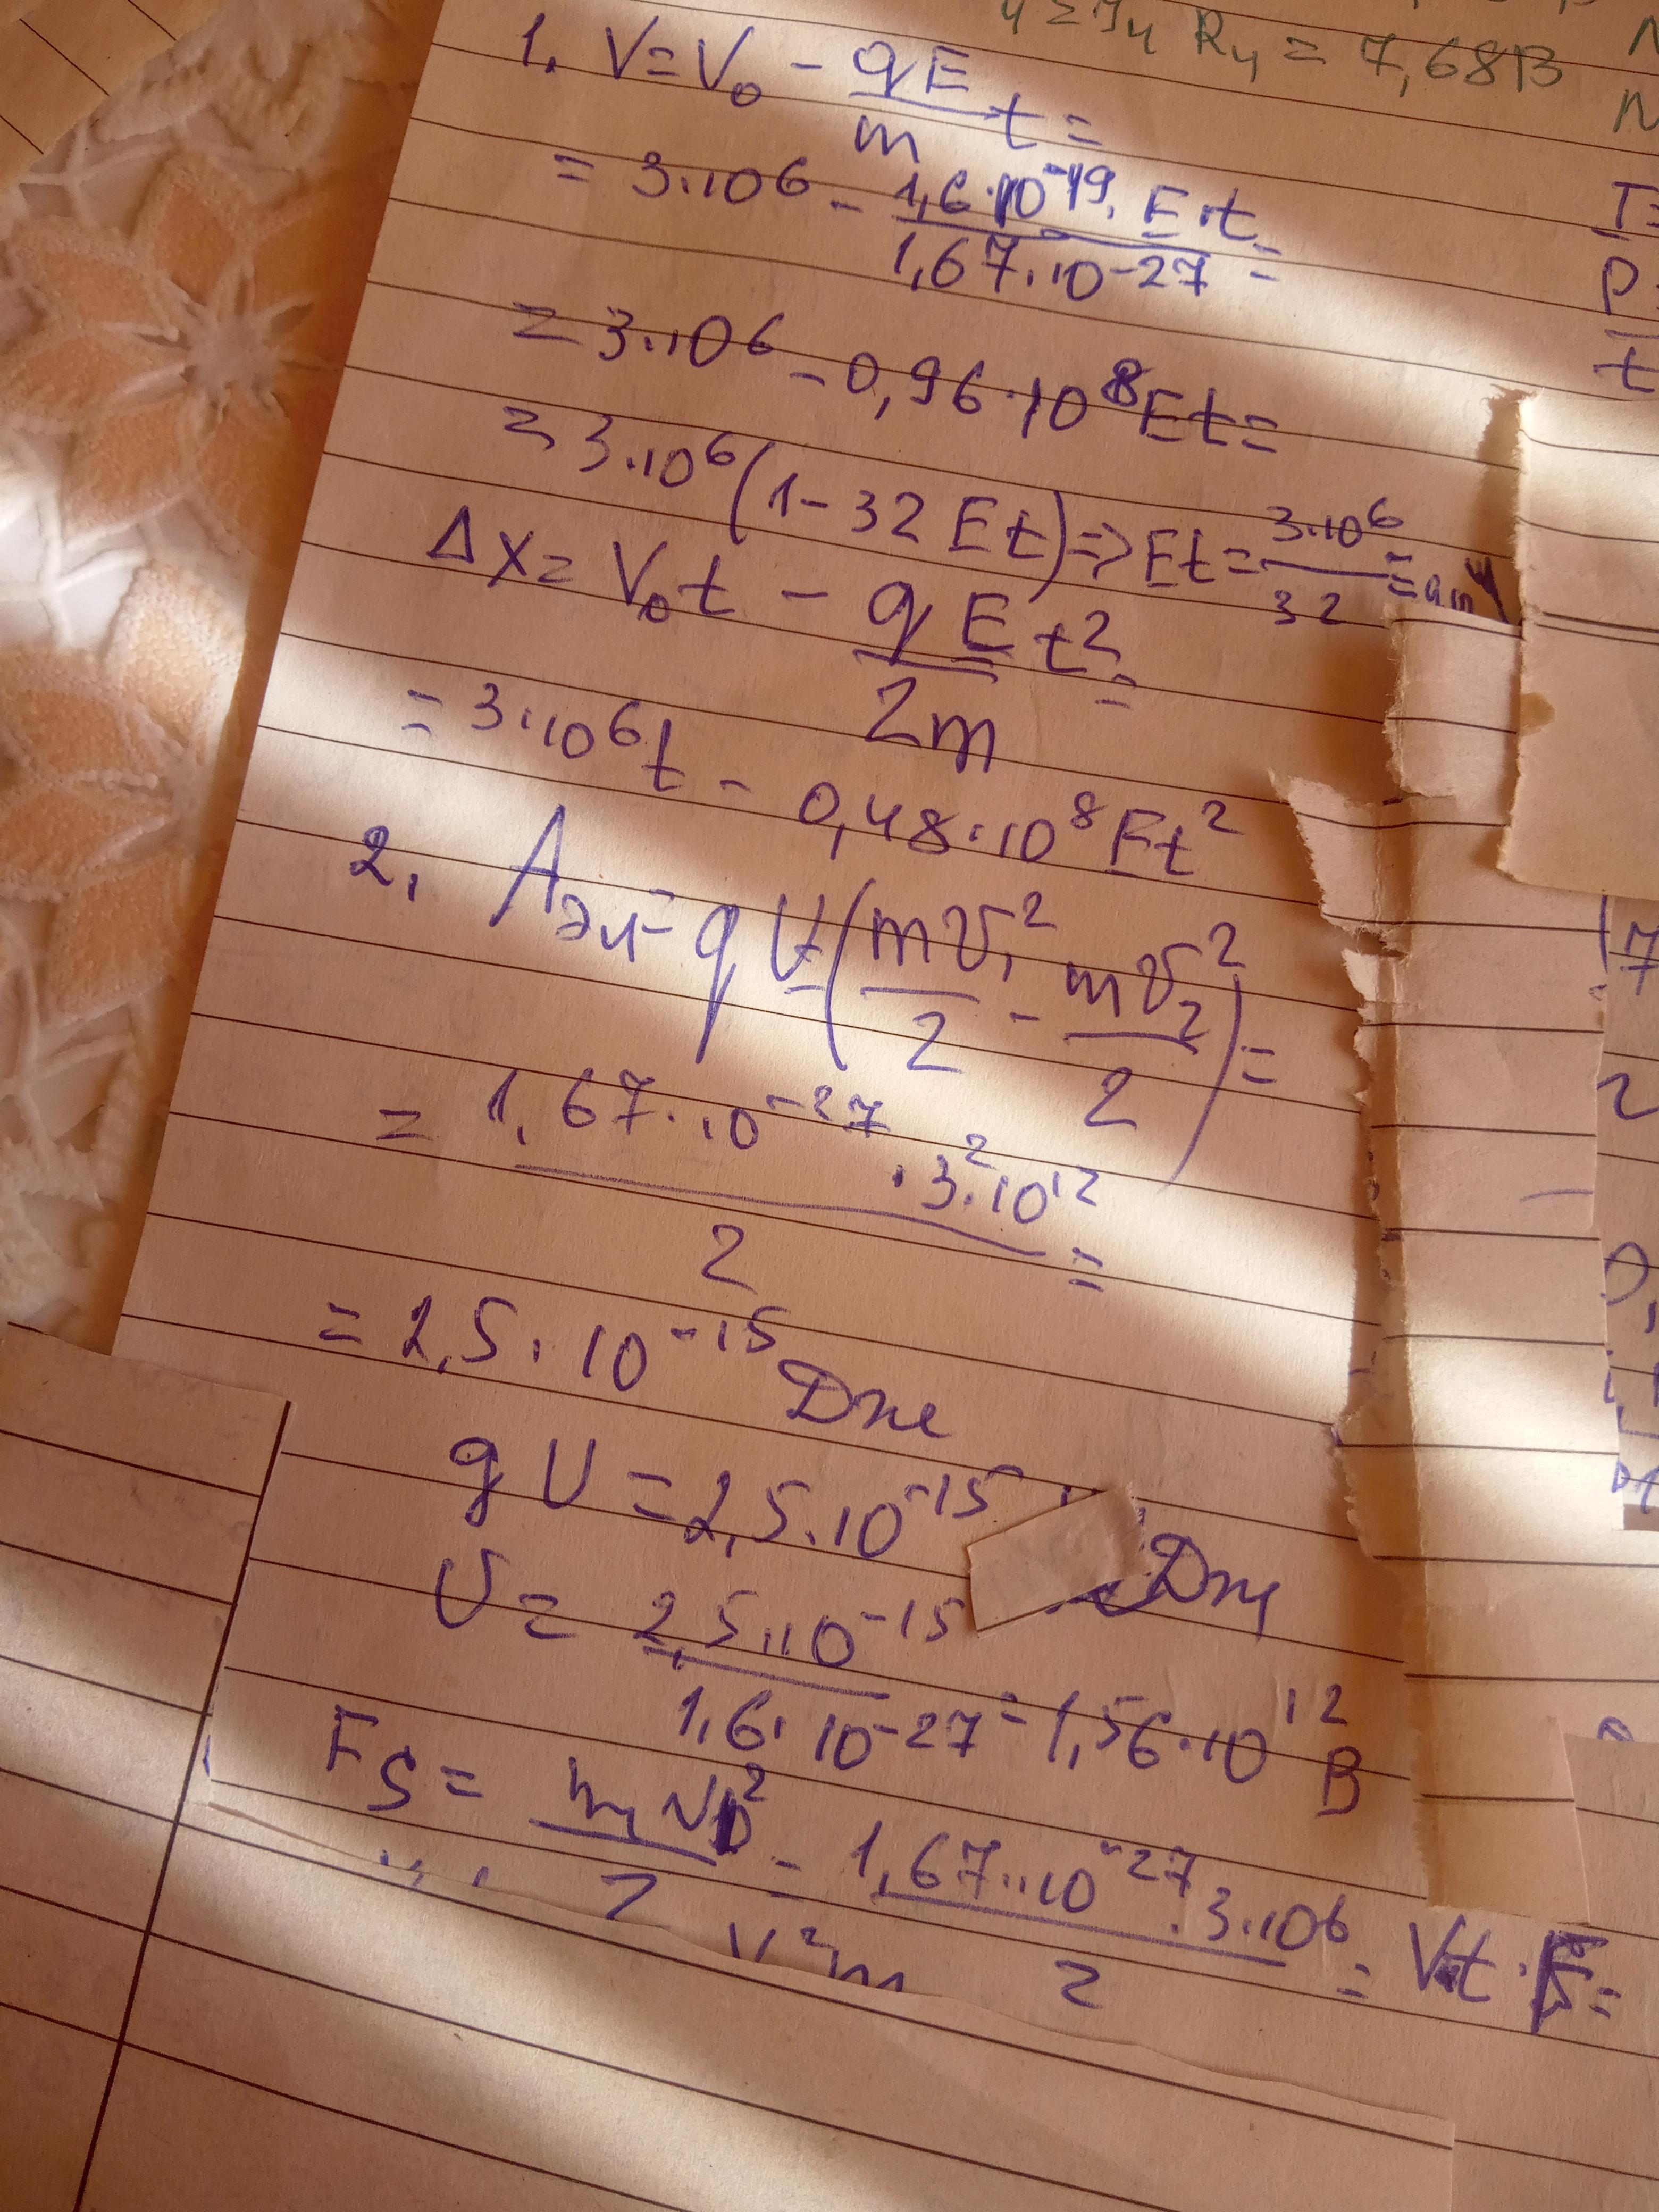 4 = J₄ R₄ = 7,68 В
1. V = V₀ - qE/m t =
= 3·10⁶ - 1,6·10⁻¹⁹·E·t / 1,67·10⁻²⁷ =
= 3·10⁶ - 0,96·10⁸Et =
= 3·10⁶(1 - 32 Et) => Et = 3·10⁶/32 =
Δx = V₀t - qEt²/2m =
= 3·10⁶t - 0,48·10⁸Et²
2. Aэл = qU (mv₁²/2 - mv₂²/2) =
= 1,67·10⁻²⁷·3²·10¹² / 2 =
= 2,5·10⁻¹⁵ Дж
qU = 2,5·10⁻¹⁵ Дж
U = 2,5·10⁻¹⁵ / 1,6·10⁻²⁷ = 1,56·10¹² В
FS = mv²/2 = 1,67·10⁻²⁷·3·10⁶ / 2 =